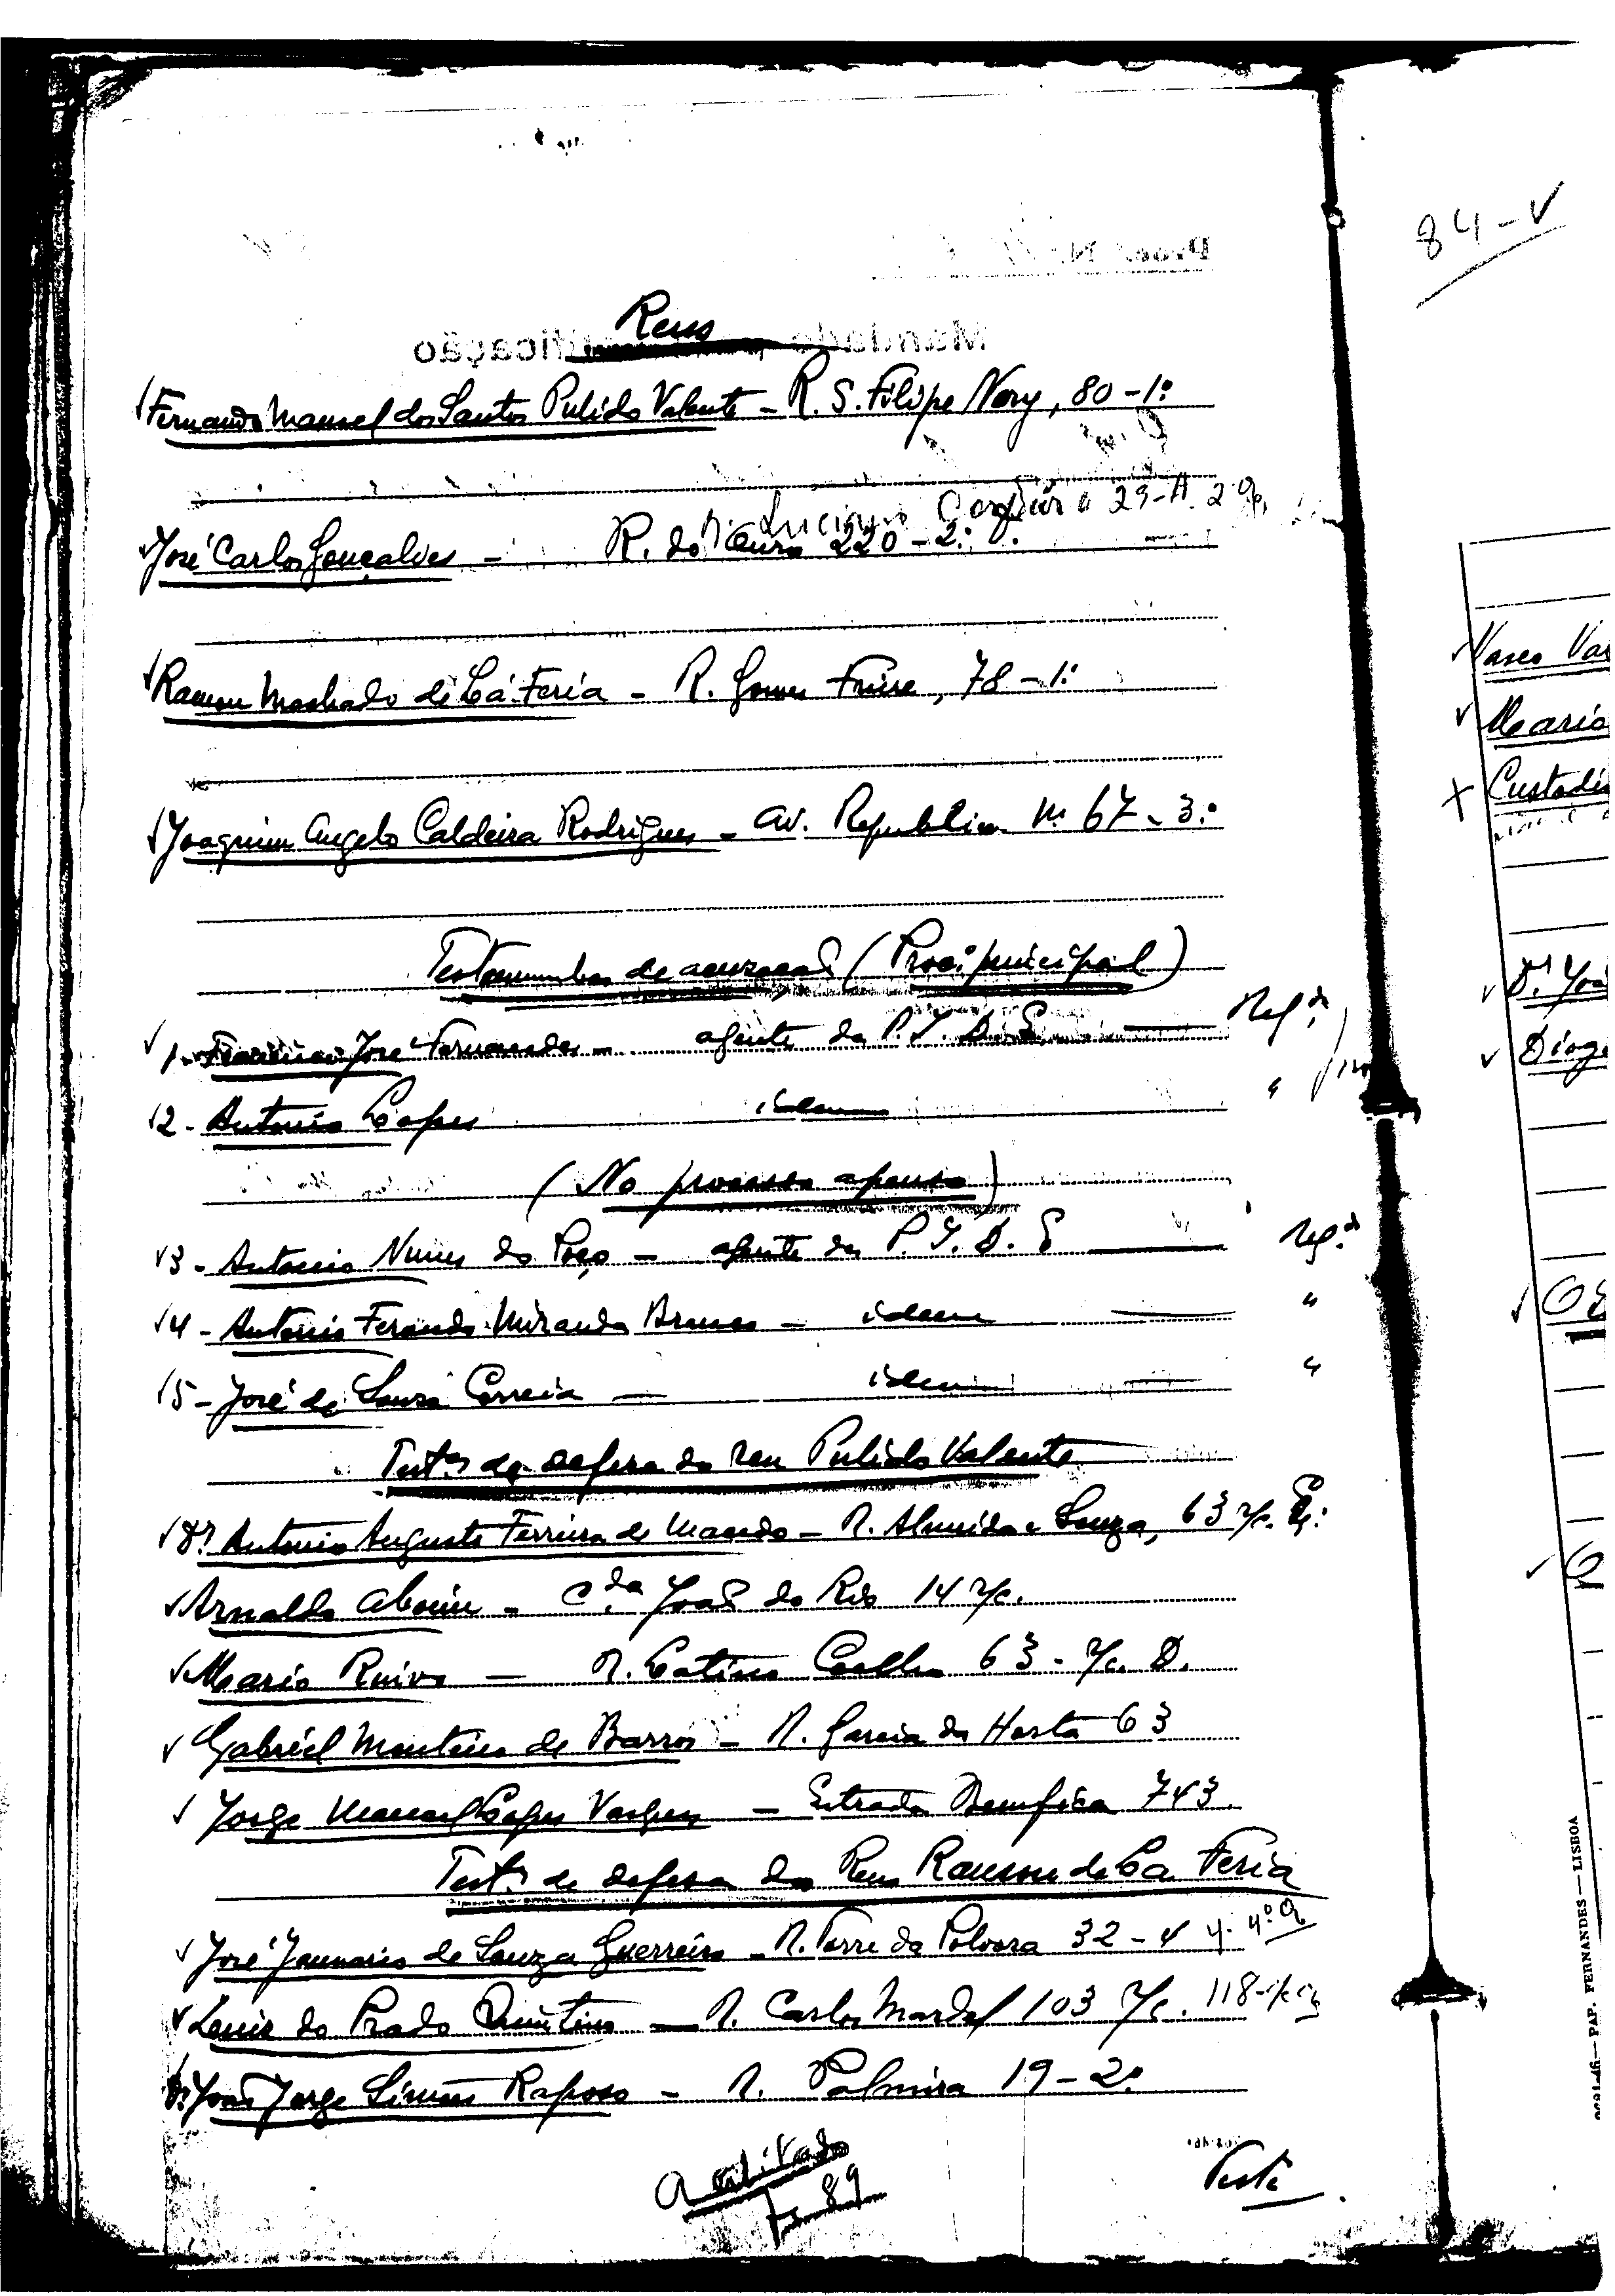 84-V
Reus
Fernando Manuel dos Santos Pulido Valente - R. S. Filipe Nery, 80-1º
R. Luciano Cordeiro 29-A. 2º
José Carlos Gonçalves - R. do Ouro 220-2º D.
Ramon Machado de Lá-Feria - R. Gomes Freire, 78-1º
Joaquim Angelo Caldeira Rodrigues - Av. Republica nº 67-3º
Testemunhas de acuzação (Proc.º principal)
1- Francisco José Fernandes - agente da P.I.D.E. Reqdª
2- Antonio Lopes idem "
(No processo apenso)
3- Antonio Nunes do Poço - agente da P.I.D.E Reqdª
4- Antonio Ferando Miranda Branco - idem "
5- José de Souza Correia - idem "
Testas de defesa do reu Pulido Valente
Dr. Antonio Augusto Ferreira de Macedo - R. Almeida e Souza, 63 r/c. E.
Arnaldo Aboim - Cda João do Rio 14 r/c.
Mario Ruivo - R. Latino Coelho 63- r/c. D.
Gabriel Monteiro de Barros - R. Garcia da Horta 63
Jorge Manuel Lopes Vasques - Estrada Bemfica 743.
Testas de defesa do Reu Ramon de La Feria
José Januario de Souza Guerreiro - R. Torre da Polvora 32-4 4º
Luiz do Prado Quintino - R. Carlos Mardel 103 r/c. 118-r/c
Dr. João Jorge Simões Raposo - R. Palmira 19-2º
89
Teste
Vasco Va
Mario
Custodi
Dr. Joã
Diog
PAP. FERNANDES — LISBOA